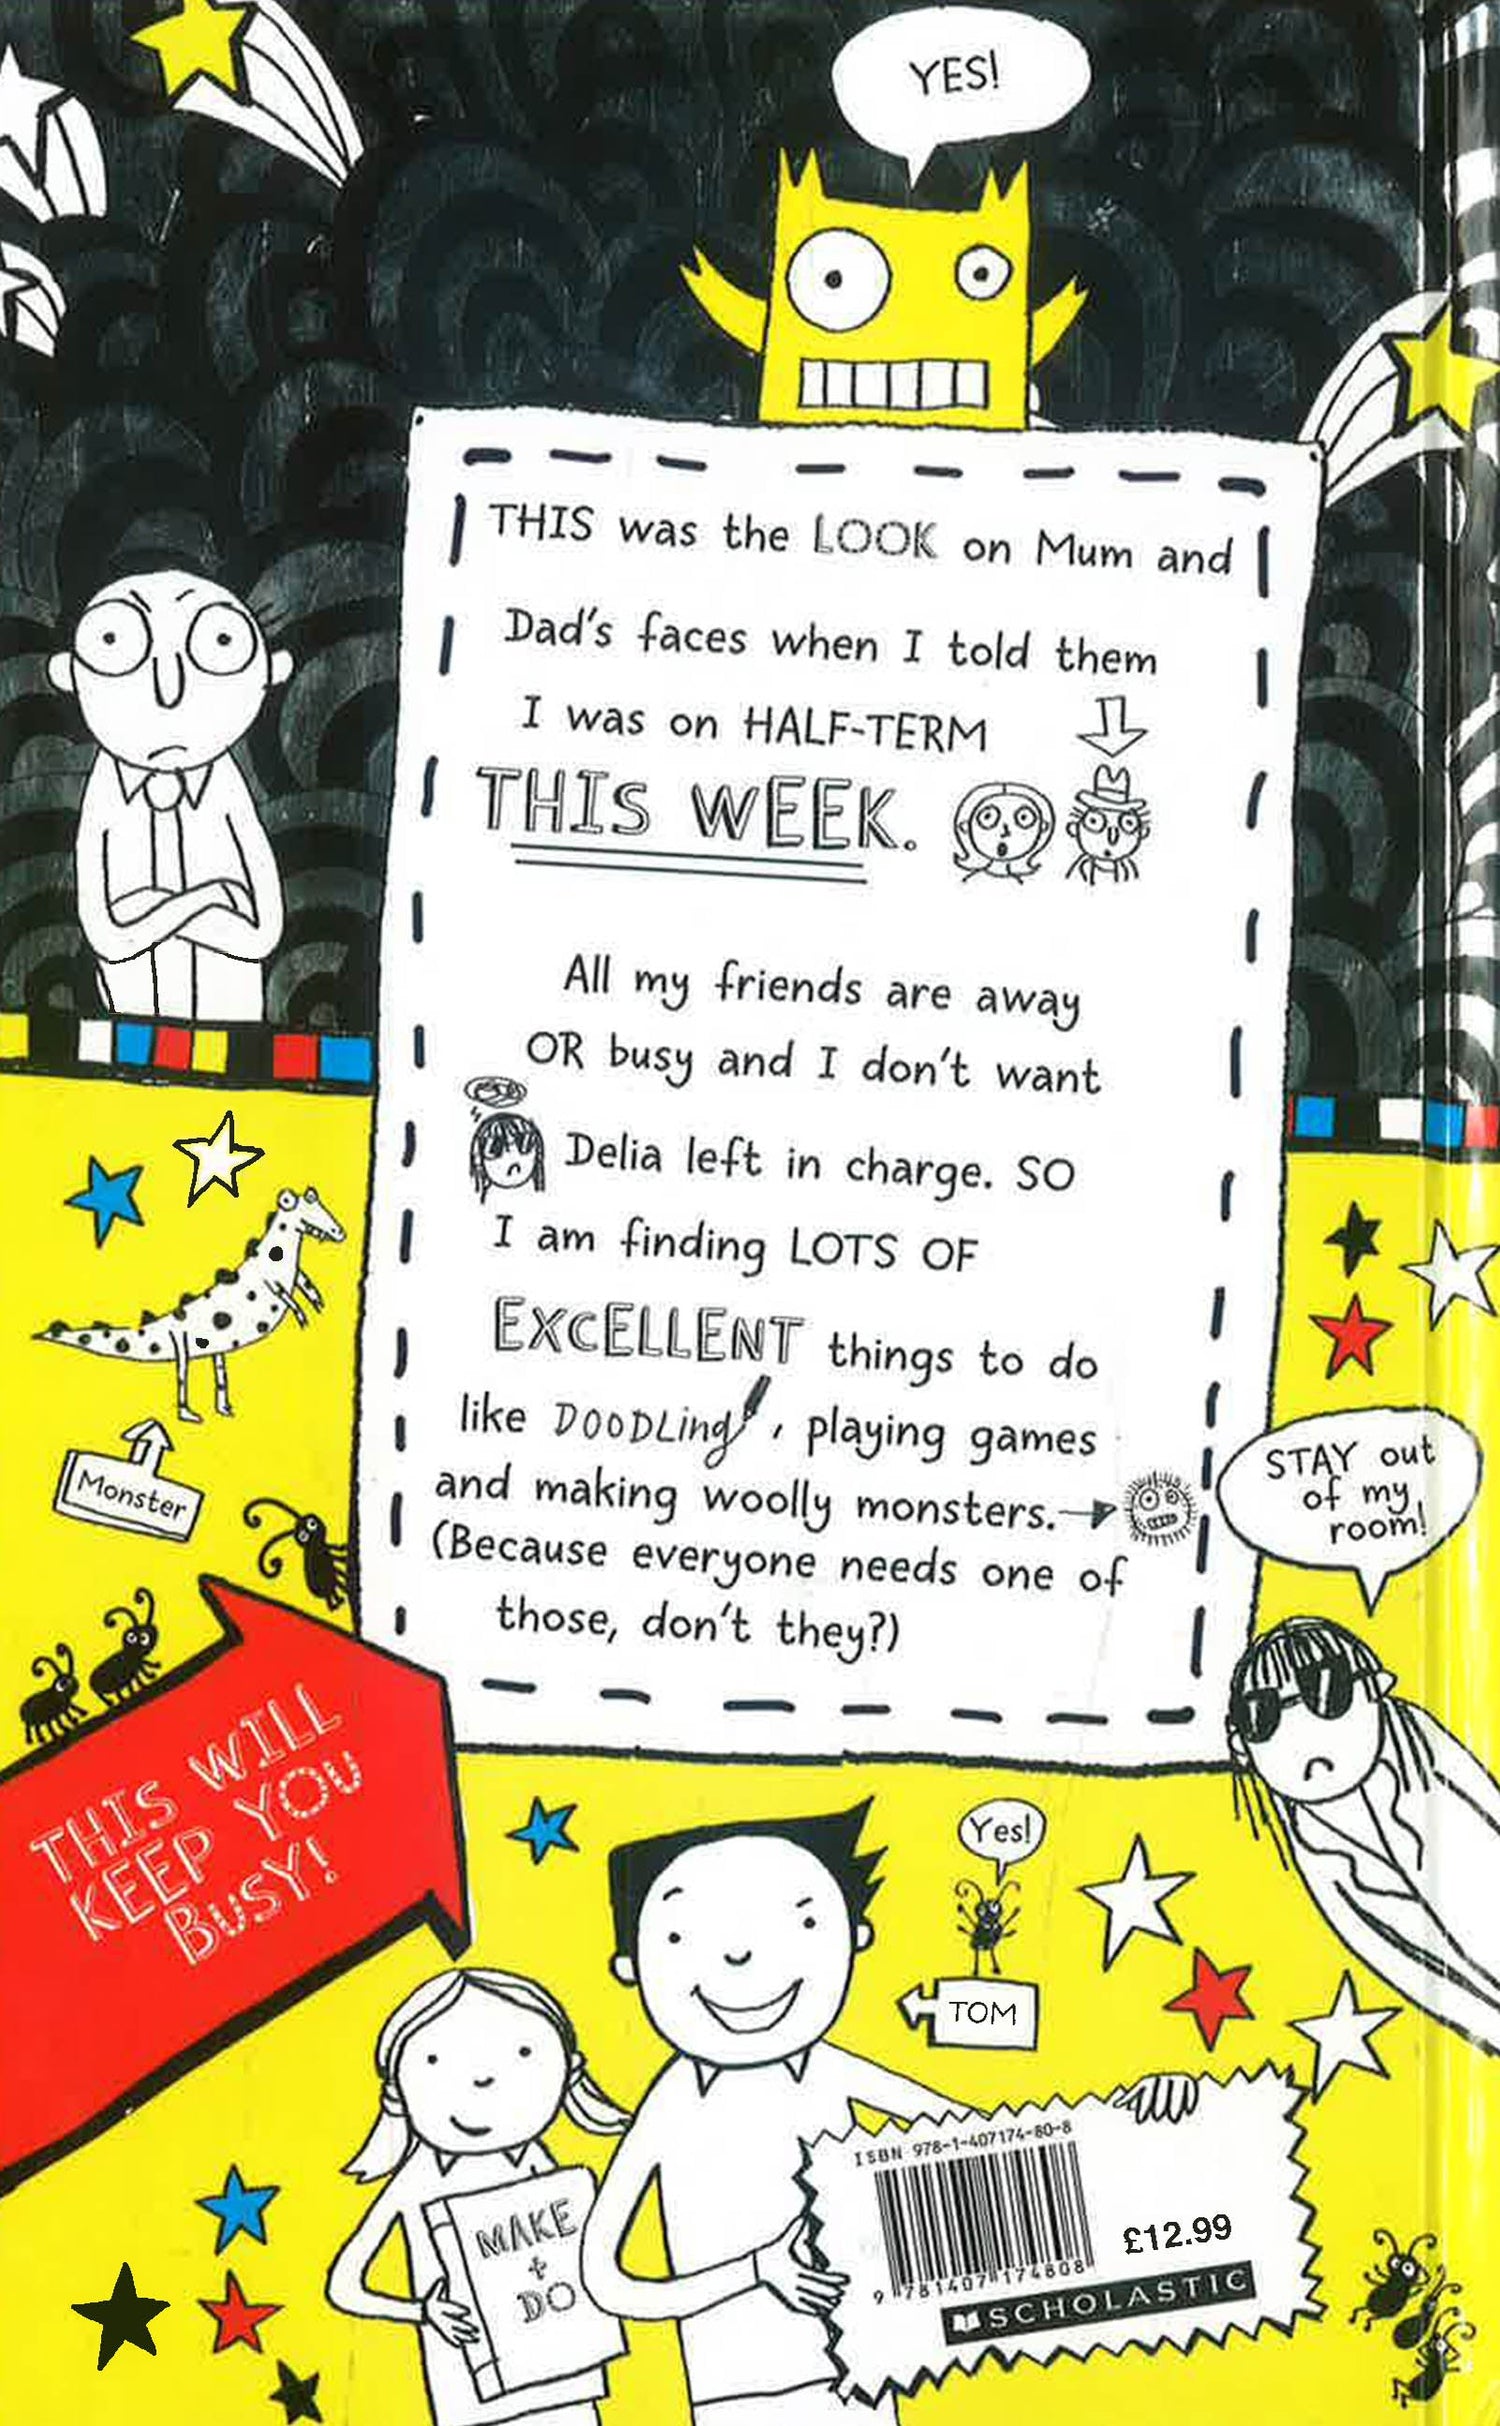 YES!
THIS was the LOOK on Mum and
Dad's faces when I told them
I was on HALF-TERM
THIS WEEK.
All my friends are away
OR busy and I don't want
Delia left in charge. SO
I am finding LOTS OF
EXCELLENT things to do
like DOODLing, playing games
and making woolly monsters.
(Because everyone needs one of
those, don't they?)
Monster
STAY out
of my
room!
THIS WILL
KEEP YOU
BUSY!
Yes!
TOM
MAKE
+
DO
ISBN 978-1-407174-80-8
9 781407 174808
£12.99
SCHOLASTIC